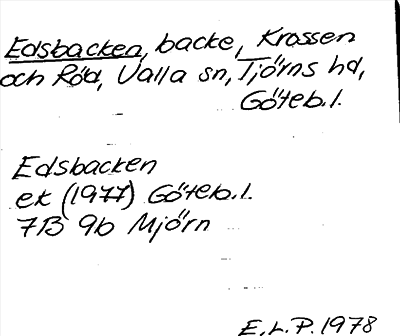 Edsbacken, backe, Krossen
och Röd, Valla sn, Tjörns hd,
Göteb.l.
Edsbacken
ek (1977) Göteb.l.
7B 9b Mjörn
E.L.P. 1978